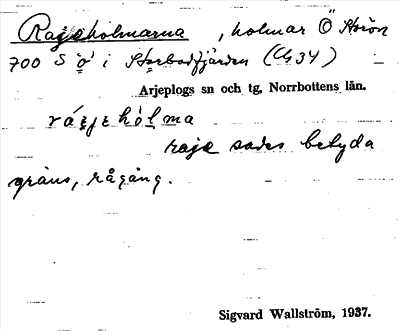 Rajeholmarna, holmar Ö Storön
700 S ö i Storbodfjärden (Čh 34)
Arjeplogs sn och tg, Norrbottens län.
ráɛjɛ hòlma
raje sades betyda
gräns, rågång.
Sigvard Wallström, 1937.